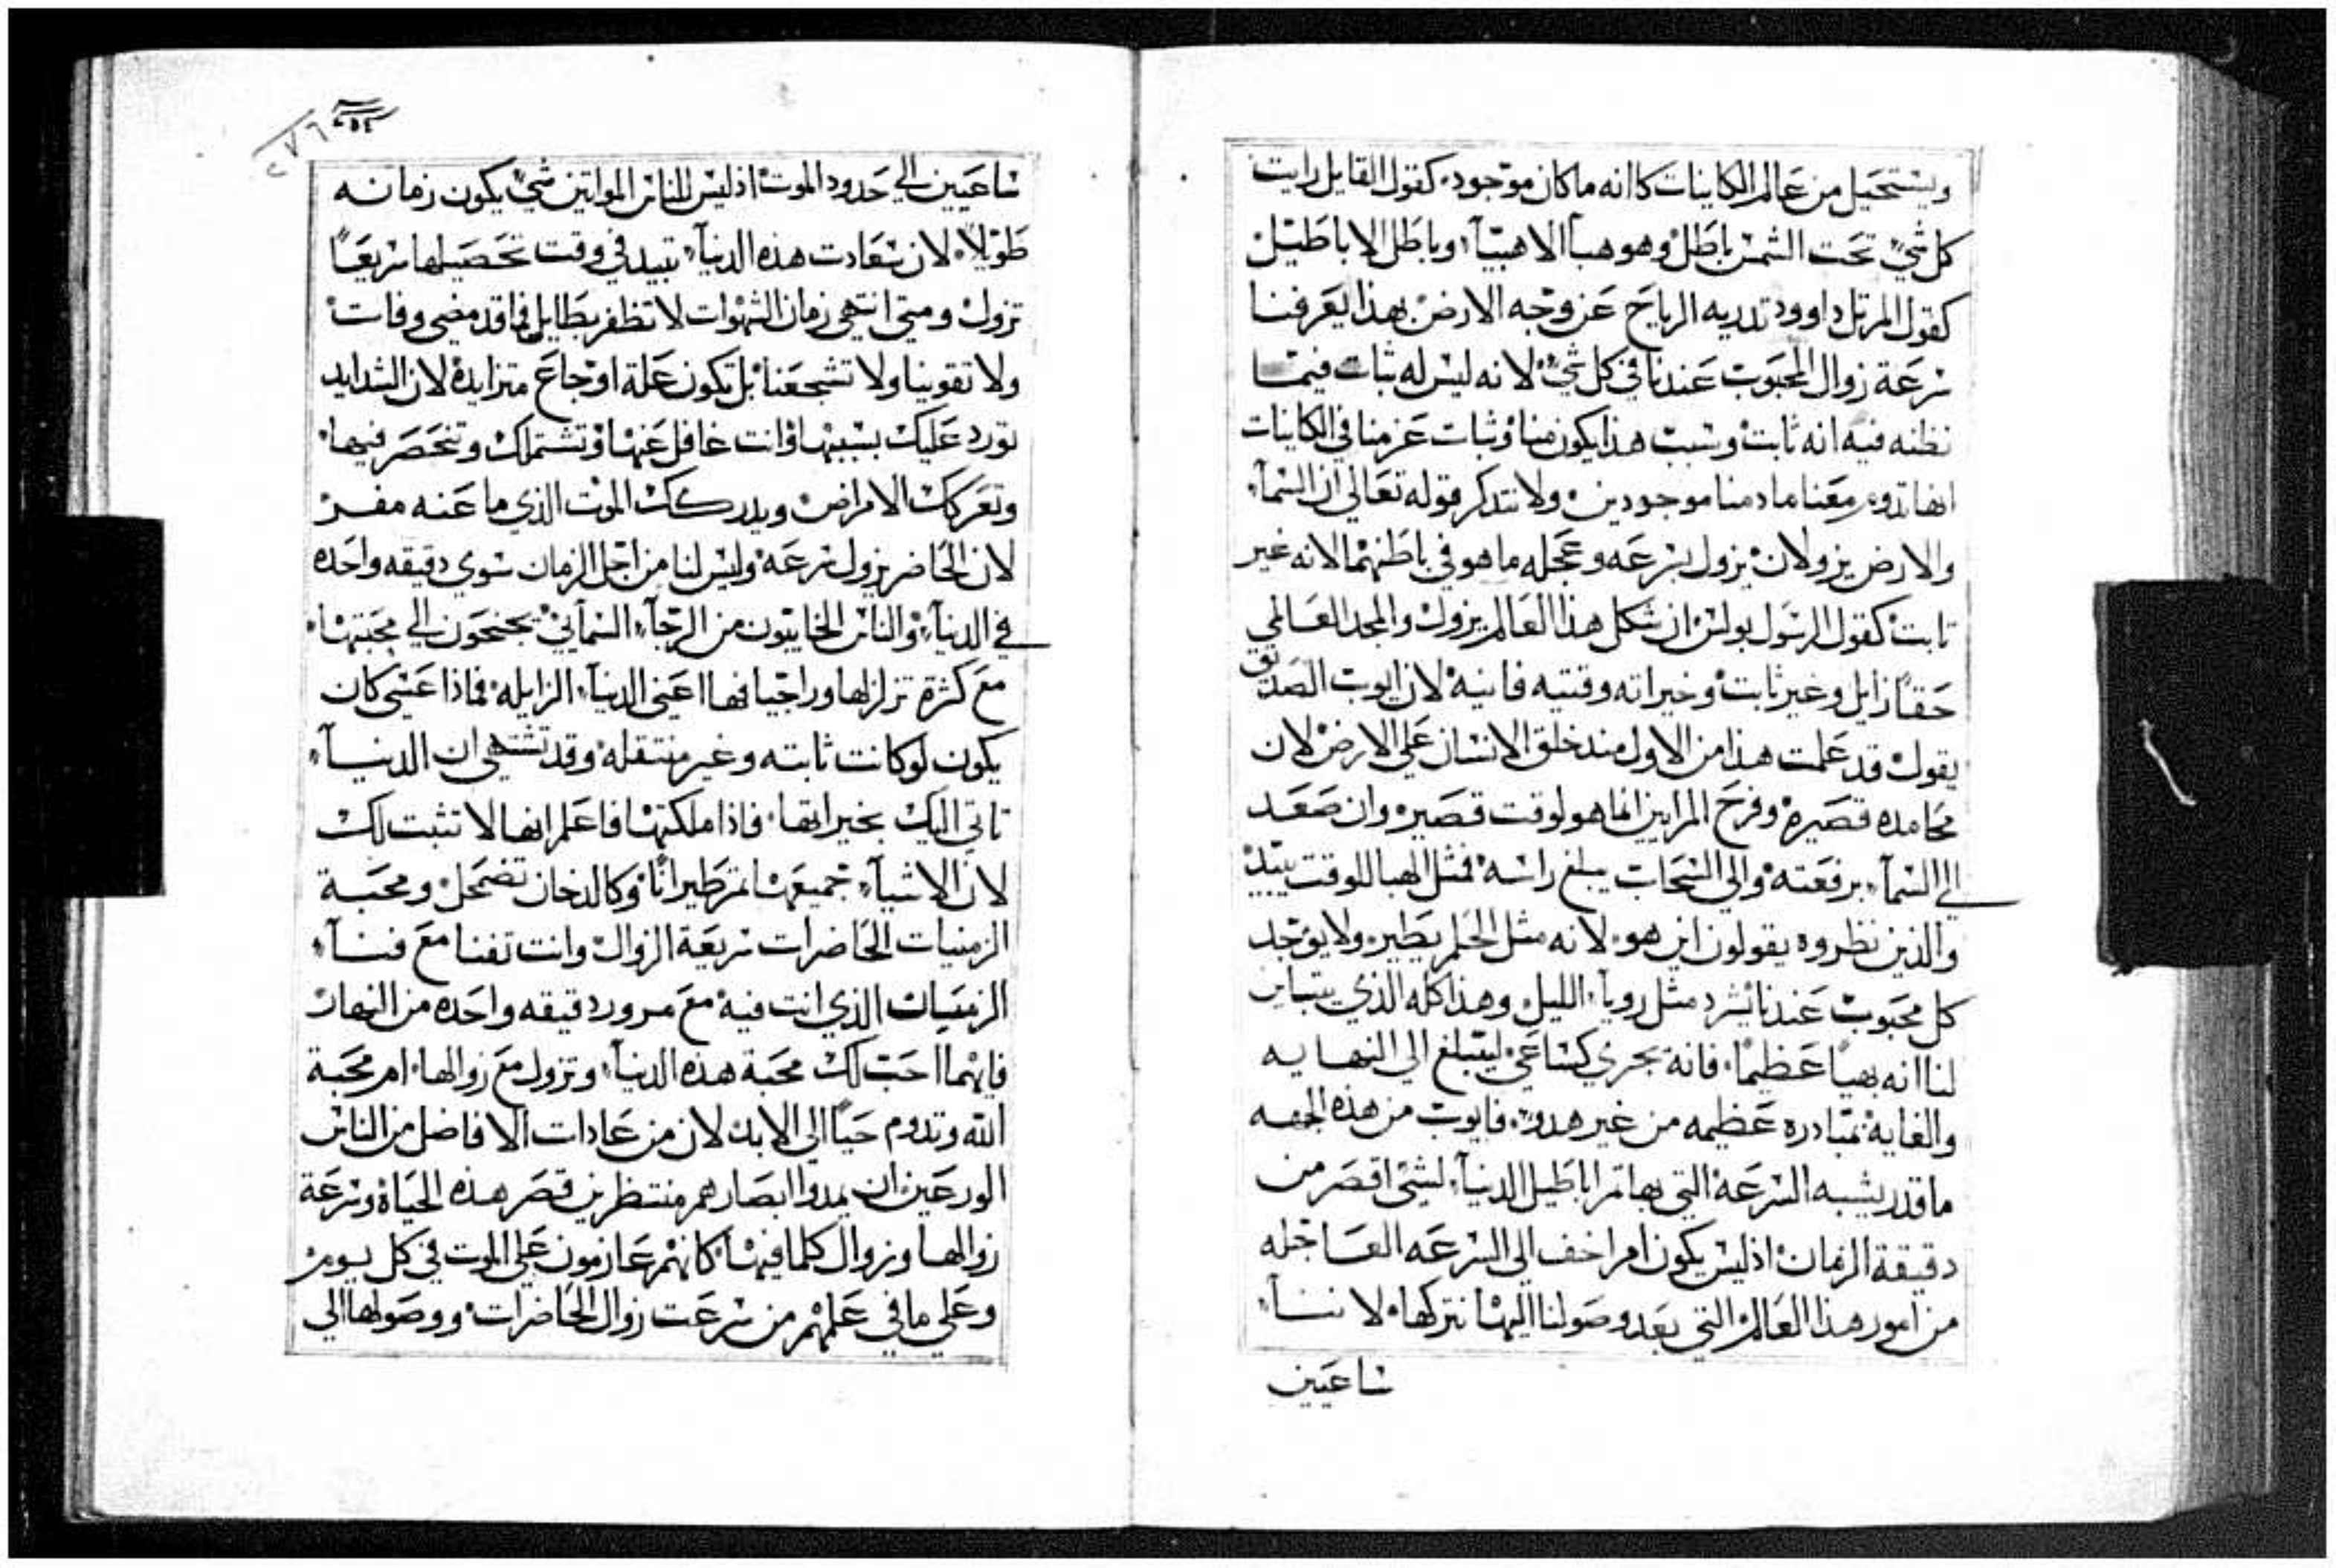 ويستحيل من عالم الكاينات كاانه ماكان موجود. كقول القايل رايت
كل شي تحت الشمس باطل وهو هبآ الاهبيآ، وباطل الاباطيل
كقول المرتل داوود تدديه الرياح عن وجه الارض بهذا يعرفنا
سرعة زوال المحبوب عندنا في كل شي لانه ليس له ثبات فيما
نظنه فيه انه ثابت وسبب هذا يكون منا وثبات عزمنا في الكاينات
انها تدوم معنا مادمنا موجودين ولا نتدكر قوله تعالي ان السمآ،
والارض يزولان يزول بسرعه وعجله ما هو في باطنهما لانه غير
تابت كقول الرسول بولس ان شكل هذا العالم يزول والمجد العالمي
حقاً زايل وغير ثابت وخيراته وقتيه فانيه لان ايوب الصديق
يقول قد علمت هذا من الاول مند خلق الانسان علي الارض لان
محامده قصيره وفرح المرايين انما هو لوقت قصير وان صعد
الي السمآ، برفعته والي السحات يبلغ راسه فمثل الهبا للوقت يبيد
والذين نظروه يقولون اين هو. لانه مثل الحلم يطير ولا يوجد
كل محبوب عندنا يشرد مثل رويآ، الليل وهذا كله الذي يتباين
لنا انه بهياً عظيماً. فانه يجري كساعي ليبلغ الي النهايه
والغايه بمبادره عظيمه من غير هدو. فايوب من هذه الجهه
ما قدر يشبه السرعه التي بها تمر اباطيل الدنيآ، لشئ اقصر من
دقيقة الزمان اذليس يكون امر اخف الي السرعه العاجله
من امور هذا العالم التي بعد وصولنا اليها نتركها لا ننسآ،
ساعيين
ساعيين الي حدود الموت اذليس للناس المواتين شي يكون زمانه
طويلاً. لان سعادت هذه الدنيآ، تبيد في وقت تحصيلها سريعاً
تزول ومتي انتهي زمان الشهوات لا تظفر بطايل فما قد مضي وفات
ولا تقوينا ولا تشجعنا بل تكون علة اوجاع متزايدة لان الشدايد
تورد عليك بسببها وانت غافل عنها وتشتملك وتنحصر فيها.
وتعركك الامراض ويدركك الموت الذي ما عنه مفر
لان الحاضر يزول بسرعه وليس لنا من اجل الزمان سوي دقيقه واحده
في الدنيآ، والناس الخايبون من الرجآ، السمآئي يجنحون الي محبتها.
مع كثرة تزلزلها وراجيا فيها اعني الدنيآ، الزايله فماذا عسي كان
يكون لو كانت ثابته وغير منتقله وقد تشتهي ان الدنيآ،
تاتي اليك بخيراتها. فاذا ملكتها فاعلم انها لا تثبت لك
لان الاشيآ، جميعها تمر طيراناً وكالدخان تضمحل ومحبة
الزمنيات الحاضرات سريعة الزوال وانت تفنا مع فنآ،
الزمنيات الذي انت فيه مع مرور دقيقه واحده من النهار
فايهما احب لك محبة هذه الدنيآ، وتزول مع زوالها. ام محبة
الله وتدوم حياً الي الابد لان من عادات الافاضل من الناس
الورعين ان يمدوا ابصارهم منتظرين قصر هذه الحياة وسرعة
زوالها وزوال كلما فيها كانهم عازمون علي الموت في كل يوم
وعلي ما في علمهم من سرعت زوال الحاضرات ووصولها الي